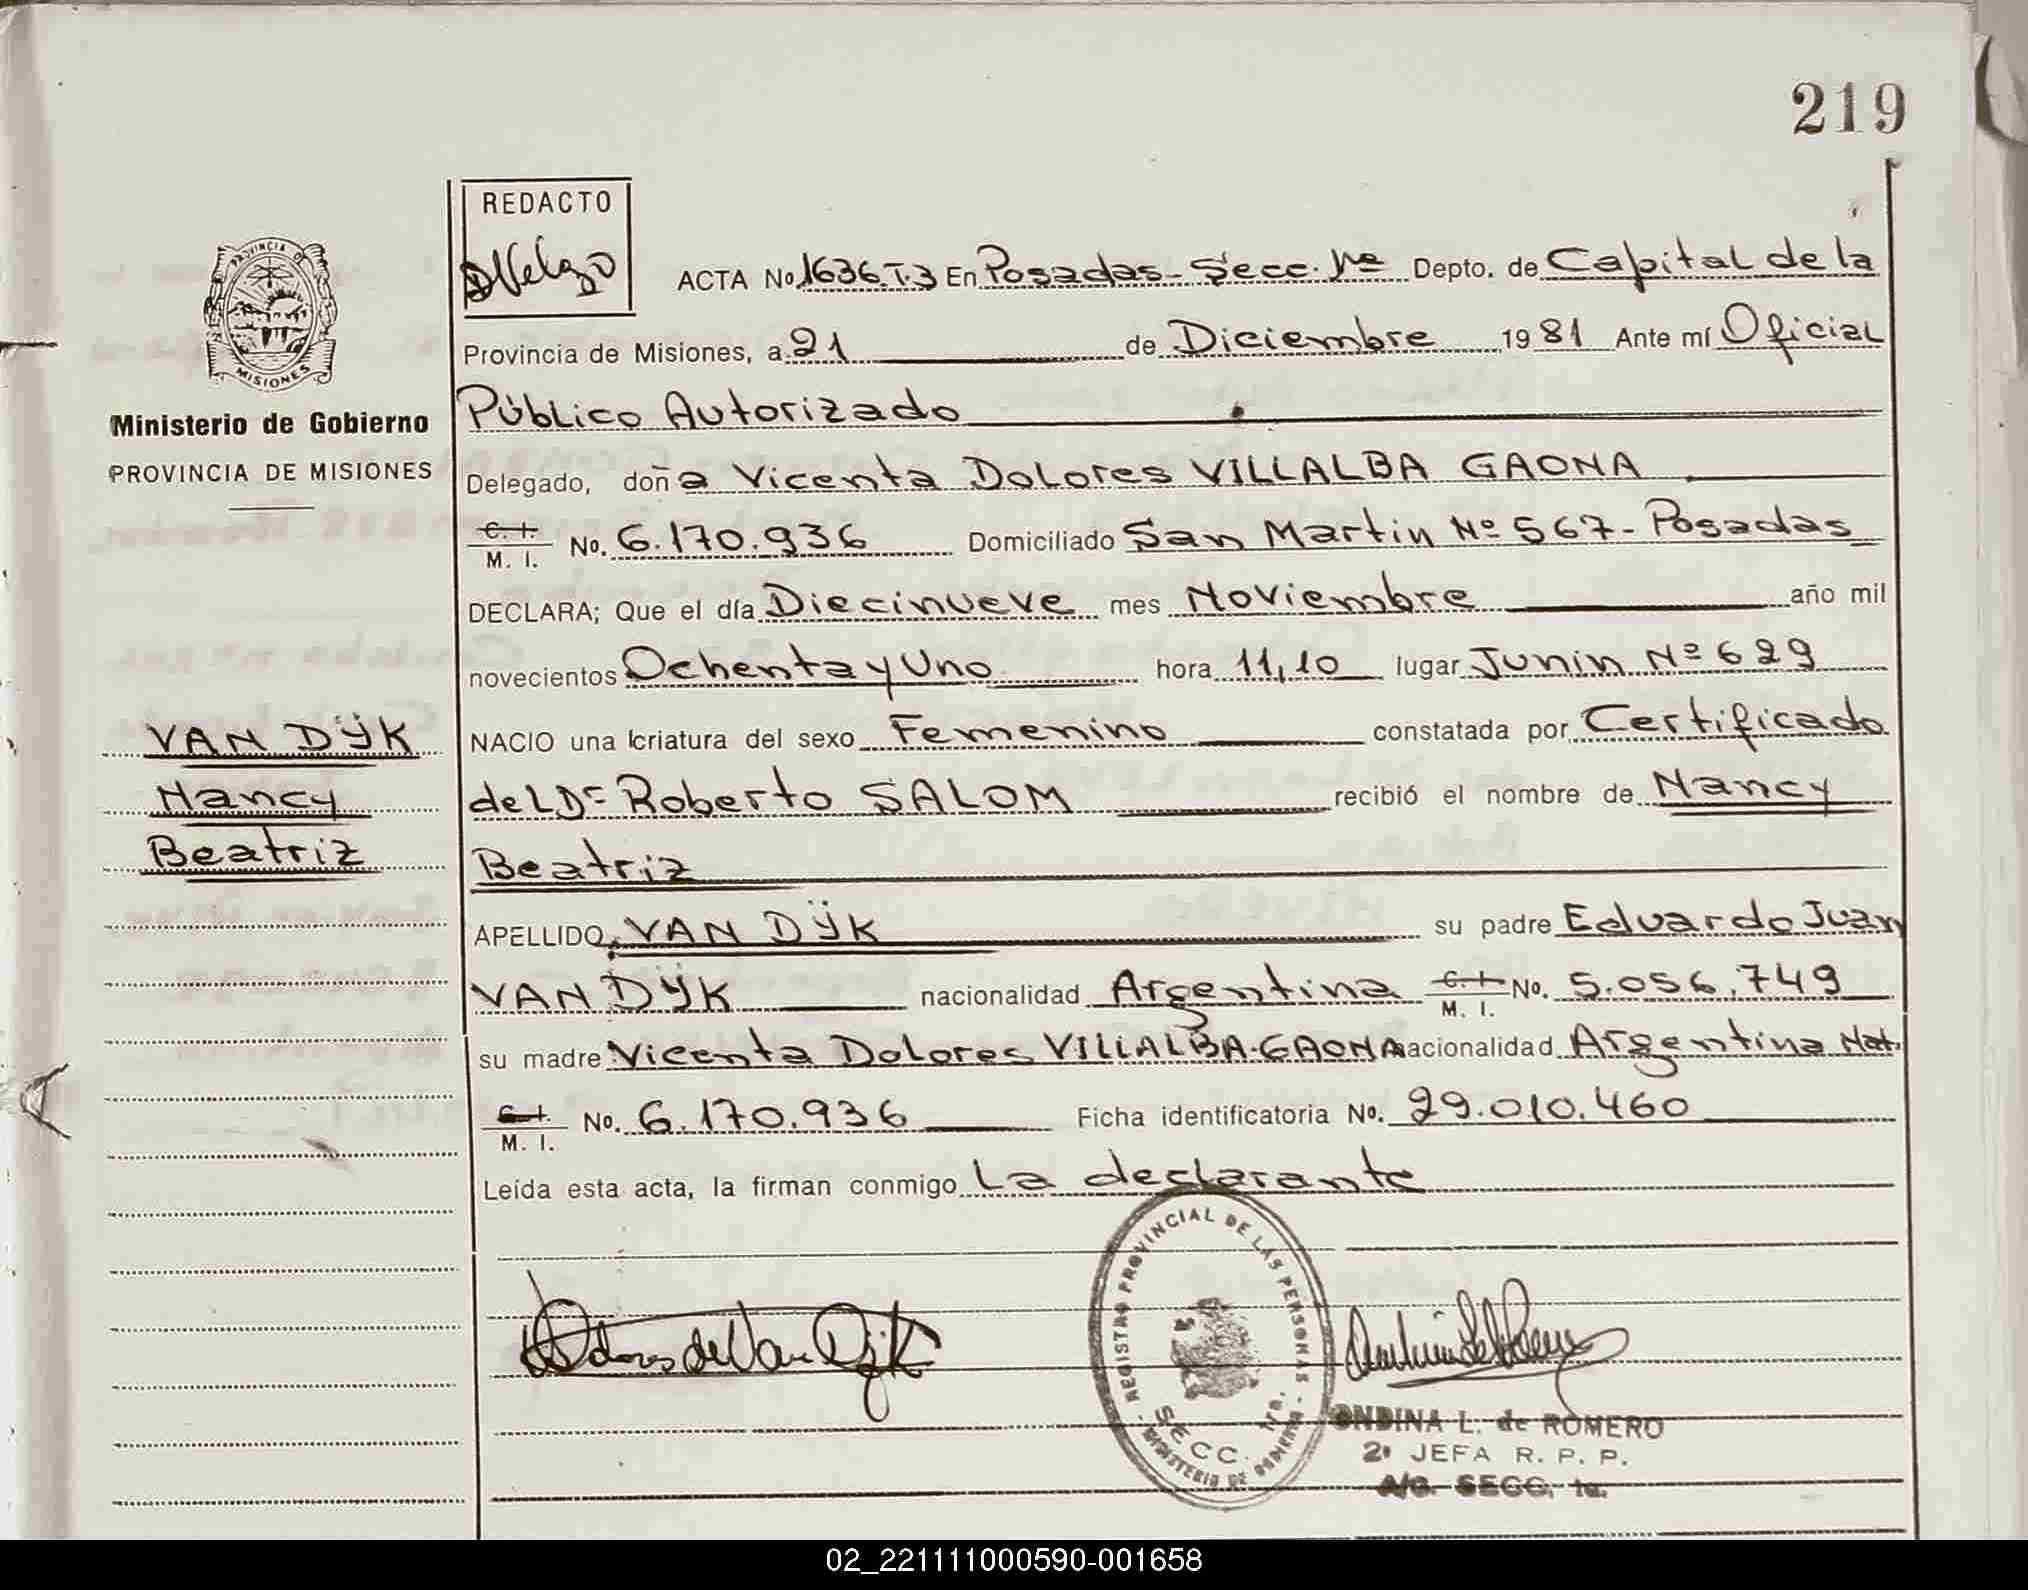 219
REDACTO
DVelazo
PROVINCIA DE
MISIONES
Ministerio de Gobierno
PROVINCIA DE MISIONES
ACTA No 1636.T.3 En Posadas-Secc. 1ª Depto. de Capital de la
Provincia de Misiones, a 21 de Diciembre 1981 Ante mí Oficial
Público Autorizado
Delegado, doña Vicenta Dolores VILLALBA GAONA
C. I.
M. I. No. 6.170.936 Domiciliado San Martin Nº 567- Posadas
DECLARA; Que el día Diecinueve mes Noviembre año mil
novecientos Ochenta y Uno hora 11,10 lugar Junin Nº 629
NACIO una criatura del sexo Femenino constatada por Certificado
del Dr Roberto SALOM recibió el nombre de Nancy
Beatriz
VAN DŸK
Nancy
Beatriz
APELLIDO VAN DŸK su padre Eduardo Juan
VAN DŸK nacionalidad Argentina C. I.
M. I. No. 5.056.749
su madre Vicenta Dolores VILLALBA-GAONA nacionalidad Argentina Nat.
C. I.
M. I. No. 6.170.936 Ficha identificatoria No. 29.010.460
Leída esta acta, la firman conmigo La declarante
Dolores de Van Dijk
REGISTRO PROVINCIAL DE LAS PERSONAS
SECC. 1ra.
MINISTERIO DE GOBIERNO
ONDINA L. de ROMERO
2ª JEFA R. P. P.
A/C. SECC. 1a.
02_221111000590-001658